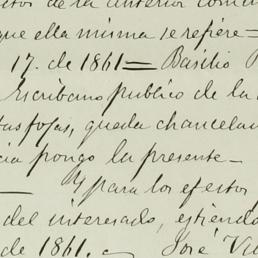 de la anterior
que ella misma se refiere=
17. de 1861= Basilio
Escribano publico de la
fojas, queda chancelan
pongo la presente_
Y para los efestos
del interesado, estiendo
de 1861. José